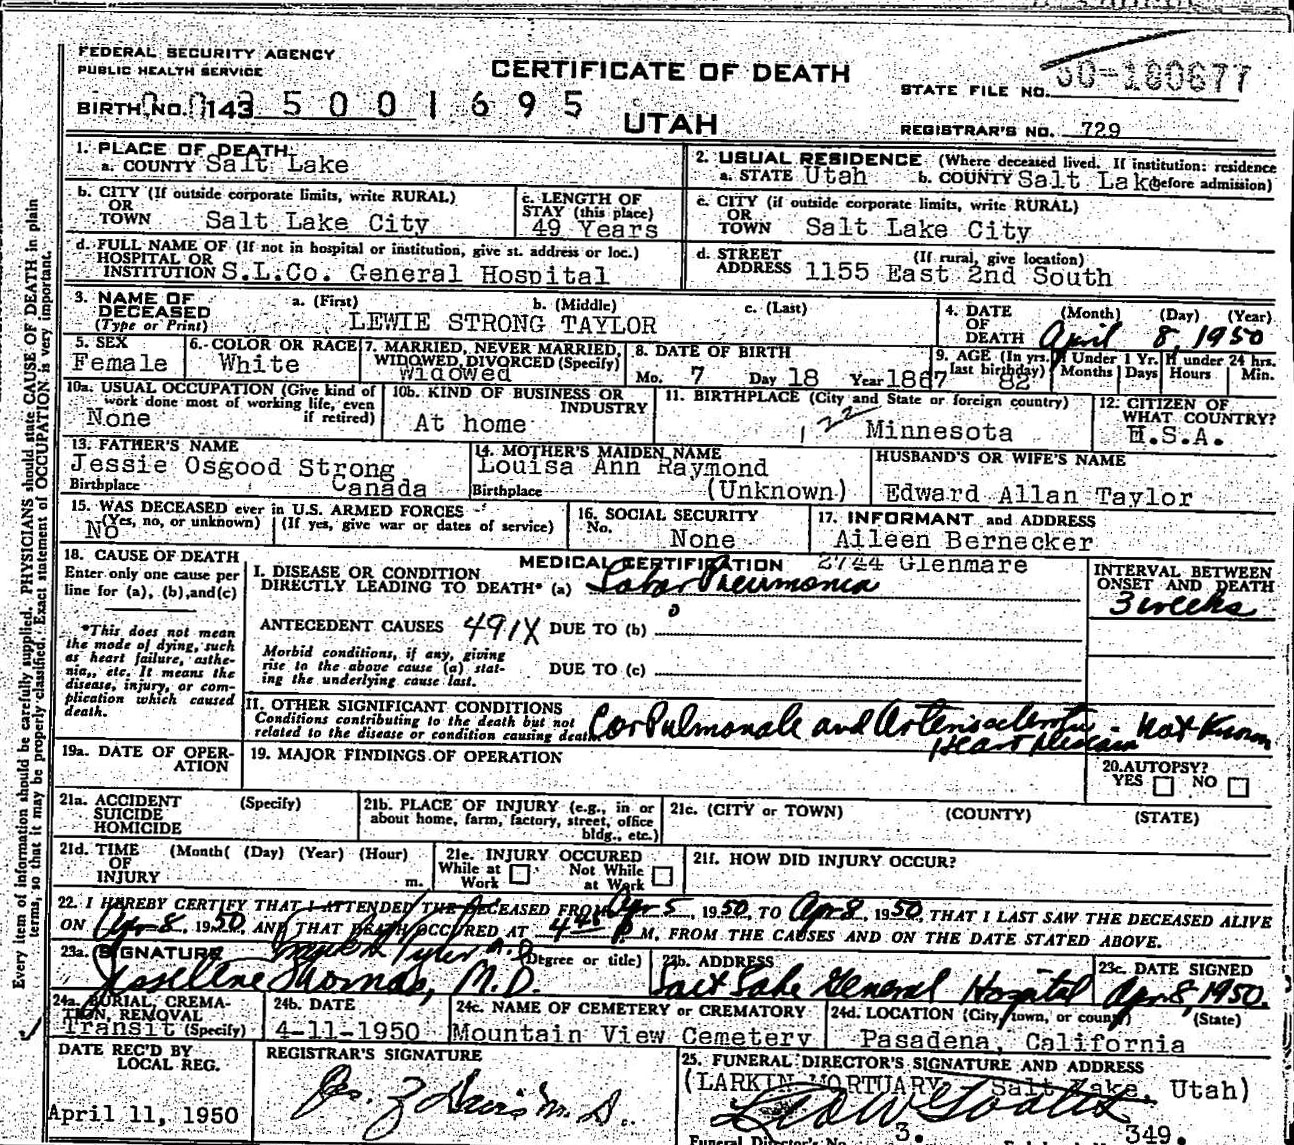 FEDERAL SECURITY AGENCY
PUBLIC HEALTH SERVICE
CERTIFICATE OF DEATH
UTAH
STATE FILE NO. 50-180677
BIRTH NO. 143 5001695
REGISTRAR'S NO. 729
1. PLACE OF DEATH
a. COUNTY Salt Lake
2. USUAL RESIDENCE (Where deceased lived. If institution: residence before admission)
a. STATE Utah b. COUNTY Salt Lake
b. CITY (If outside corporate limits, write RURAL)
OR
TOWN Salt Lake City
c. LENGTH OF
STAY (this place)
49 Years
c. CITY (if outside corporate limits, write RURAL)
OR
TOWN Salt Lake City
d. FULL NAME OF (If not in hospital or institution, give st. address or loc.)
HOSPITAL OR
INSTITUTION S.L.Co. General Hospital
d. STREET (If rural, give location)
ADDRESS 1155 East 2nd South
3. NAME OF
DECEASED
(Type or Print)
a. (First) b. (Middle) c. (Last)
LEWIE STRONG TAYLOR
4. DATE OF DEATH (Month) (Day) (Year)
April 8, 1950
5. SEX
Female
6. COLOR OR RACE
White
7. MARRIED, NEVER MARRIED,
WIDOWED, DIVORCED (Specify)
Widowed
8. DATE OF BIRTH
Mo. 7 Day 18 Year 1867
9. AGE (In yrs. last birthday) 82
If Under 1 Yr. Months Days
If under 24 hrs. Hours Min.
10a. USUAL OCCUPATION (Give kind of
work done most of working life, even
if retired)
None
10b. KIND OF BUSINESS OR
INDUSTRY
At home
11. BIRTHPLACE (City and State or foreign country)
22 Minnesota
12. CITIZEN OF
WHAT COUNTRY?
U.S.A.
13. FATHER'S NAME
Jessie Osgood Strong
Birthplace Canada
14. MOTHER'S MAIDEN NAME
Louisa Ann Raymond
Birthplace (Unknown)
HUSBAND'S OR WIFE'S NAME
Edward Allan Taylor
15. WAS DECEASED ever in U.S. ARMED FORCES
(Yes, no, or unknown) (If yes, give war or dates of service)
No
16. SOCIAL SECURITY
No. None
17. INFORMANT and ADDRESS
Aileen Bernecker
2744 Glenmare
18. CAUSE OF DEATH
Enter only one cause per
line for (a), (b), and (c)
*This does not mean
the mode of dying, such
as heart failure, asthe-
nia,, etc. It means the
disease, injury, or com-
plication which caused
death.
MEDICAL CERTIFICATION
I. DISEASE OR CONDITION
DIRECTLY LEADING TO DEATH* (a) Lobar Pneumonia
ANTECEDENT CAUSES 491X DUE TO (b)
Morbid conditions, if any, giving
rise to the above cause (a) stat-
ing the underlying cause last.
DUE TO (c)
INTERVAL BETWEEN
ONSET AND DEATH
3 weeks
II. OTHER SIGNIFICANT CONDITIONS
Conditions contributing to the death but not
related to the disease or condition causing death.
Cor Pulmonale and Arteriosclerotic - Not Known
Heart Disease
19a. DATE OF OPER-
ATION
19. MAJOR FINDINGS OF OPERATION
20. AUTOPSY?
YES NO
21a. ACCIDENT (Specify)
SUICIDE
HOMICIDE
21b. PLACE OF INJURY (e.g., in or
about home, farm, factory, street, office
bldg., etc.)
21c. (CITY or TOWN) (COUNTY) (STATE)
21d. TIME (Month( (Day) (Year) (Hour)
OF
INJURY m.
21e. INJURY OCCURED
While at Work Not While at Work
21f. HOW DID INJURY OCCUR?
22. I HEREBY CERTIFY THAT I ATTENDED THE DECEASED FROM Apr 5, 1950, TO Apr 8, 1950, THAT I LAST SAW THE DECEASED ALIVE
ON Apr 8, 1950, AND THAT DEATH OCCURED AT 4 P M, FROM THE CAUSES AND ON THE DATE STATED ABOVE.
23a. SIGNATURE Tyler (Degree or title)
Thomas, M.D.
23b. ADDRESS
Salt Lake General Hospital
23c. DATE SIGNED
Apr 8, 1950.
24a. BURIAL, CREMA-
TION, REMOVAL
Transit (Specify)
24b. DATE
4-11-1950
24c. NAME OF CEMETERY or CREMATORY
Mountain View Cemetery
24d. LOCATION (City, town, or county) (State)
Pasadena, California
DATE REC'D BY
LOCAL REG.
April 11, 1950
REGISTRAR'S SIGNATURE
25. FUNERAL DIRECTOR'S SIGNATURE AND ADDRESS
(LARKIN MORTUARY Salt Lake, Utah)
3. 349.
Every item of information should be carefully supplied. PHYSICIANS should state CAUSE OF DEATH in plain
terms, so that it may be properly classified. Exact statement of OCCUPATION is very important.